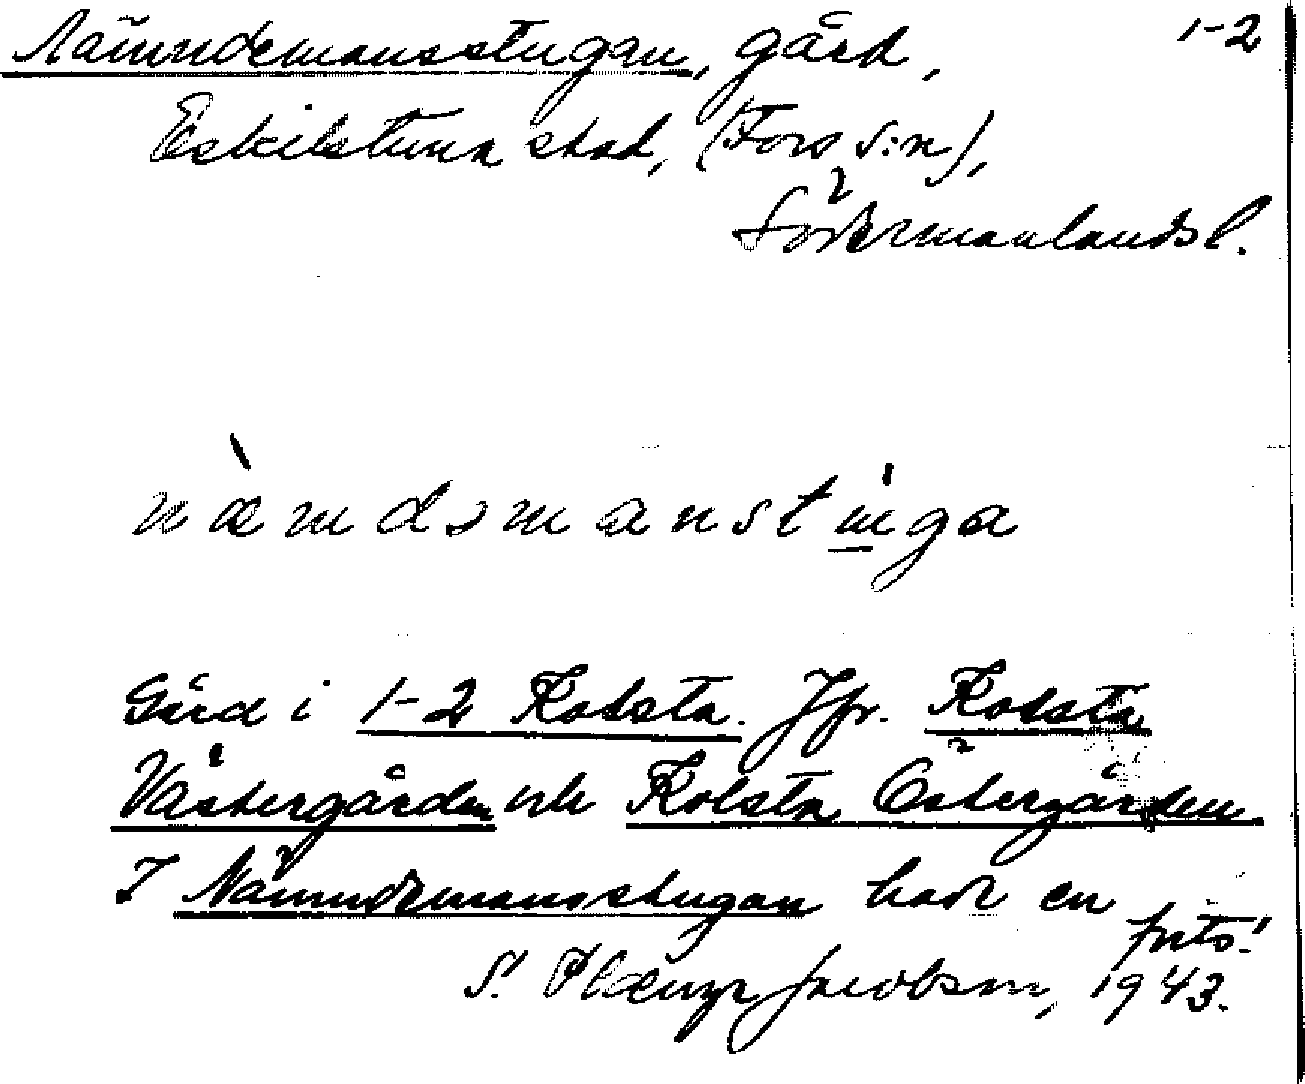 Nämndemansstugan, gård, 1-2
Eskilstuna stad, (Fors s:n),
Södermanlands l.
næ̀mdəmanstu̇ga
Gård i 1-2 Kolsta. Jfr. Kolsta
Västergården och Kolsta Östergården.
I Nämndemansstugan bodde en
forts!
S. Jacobson, 1943.